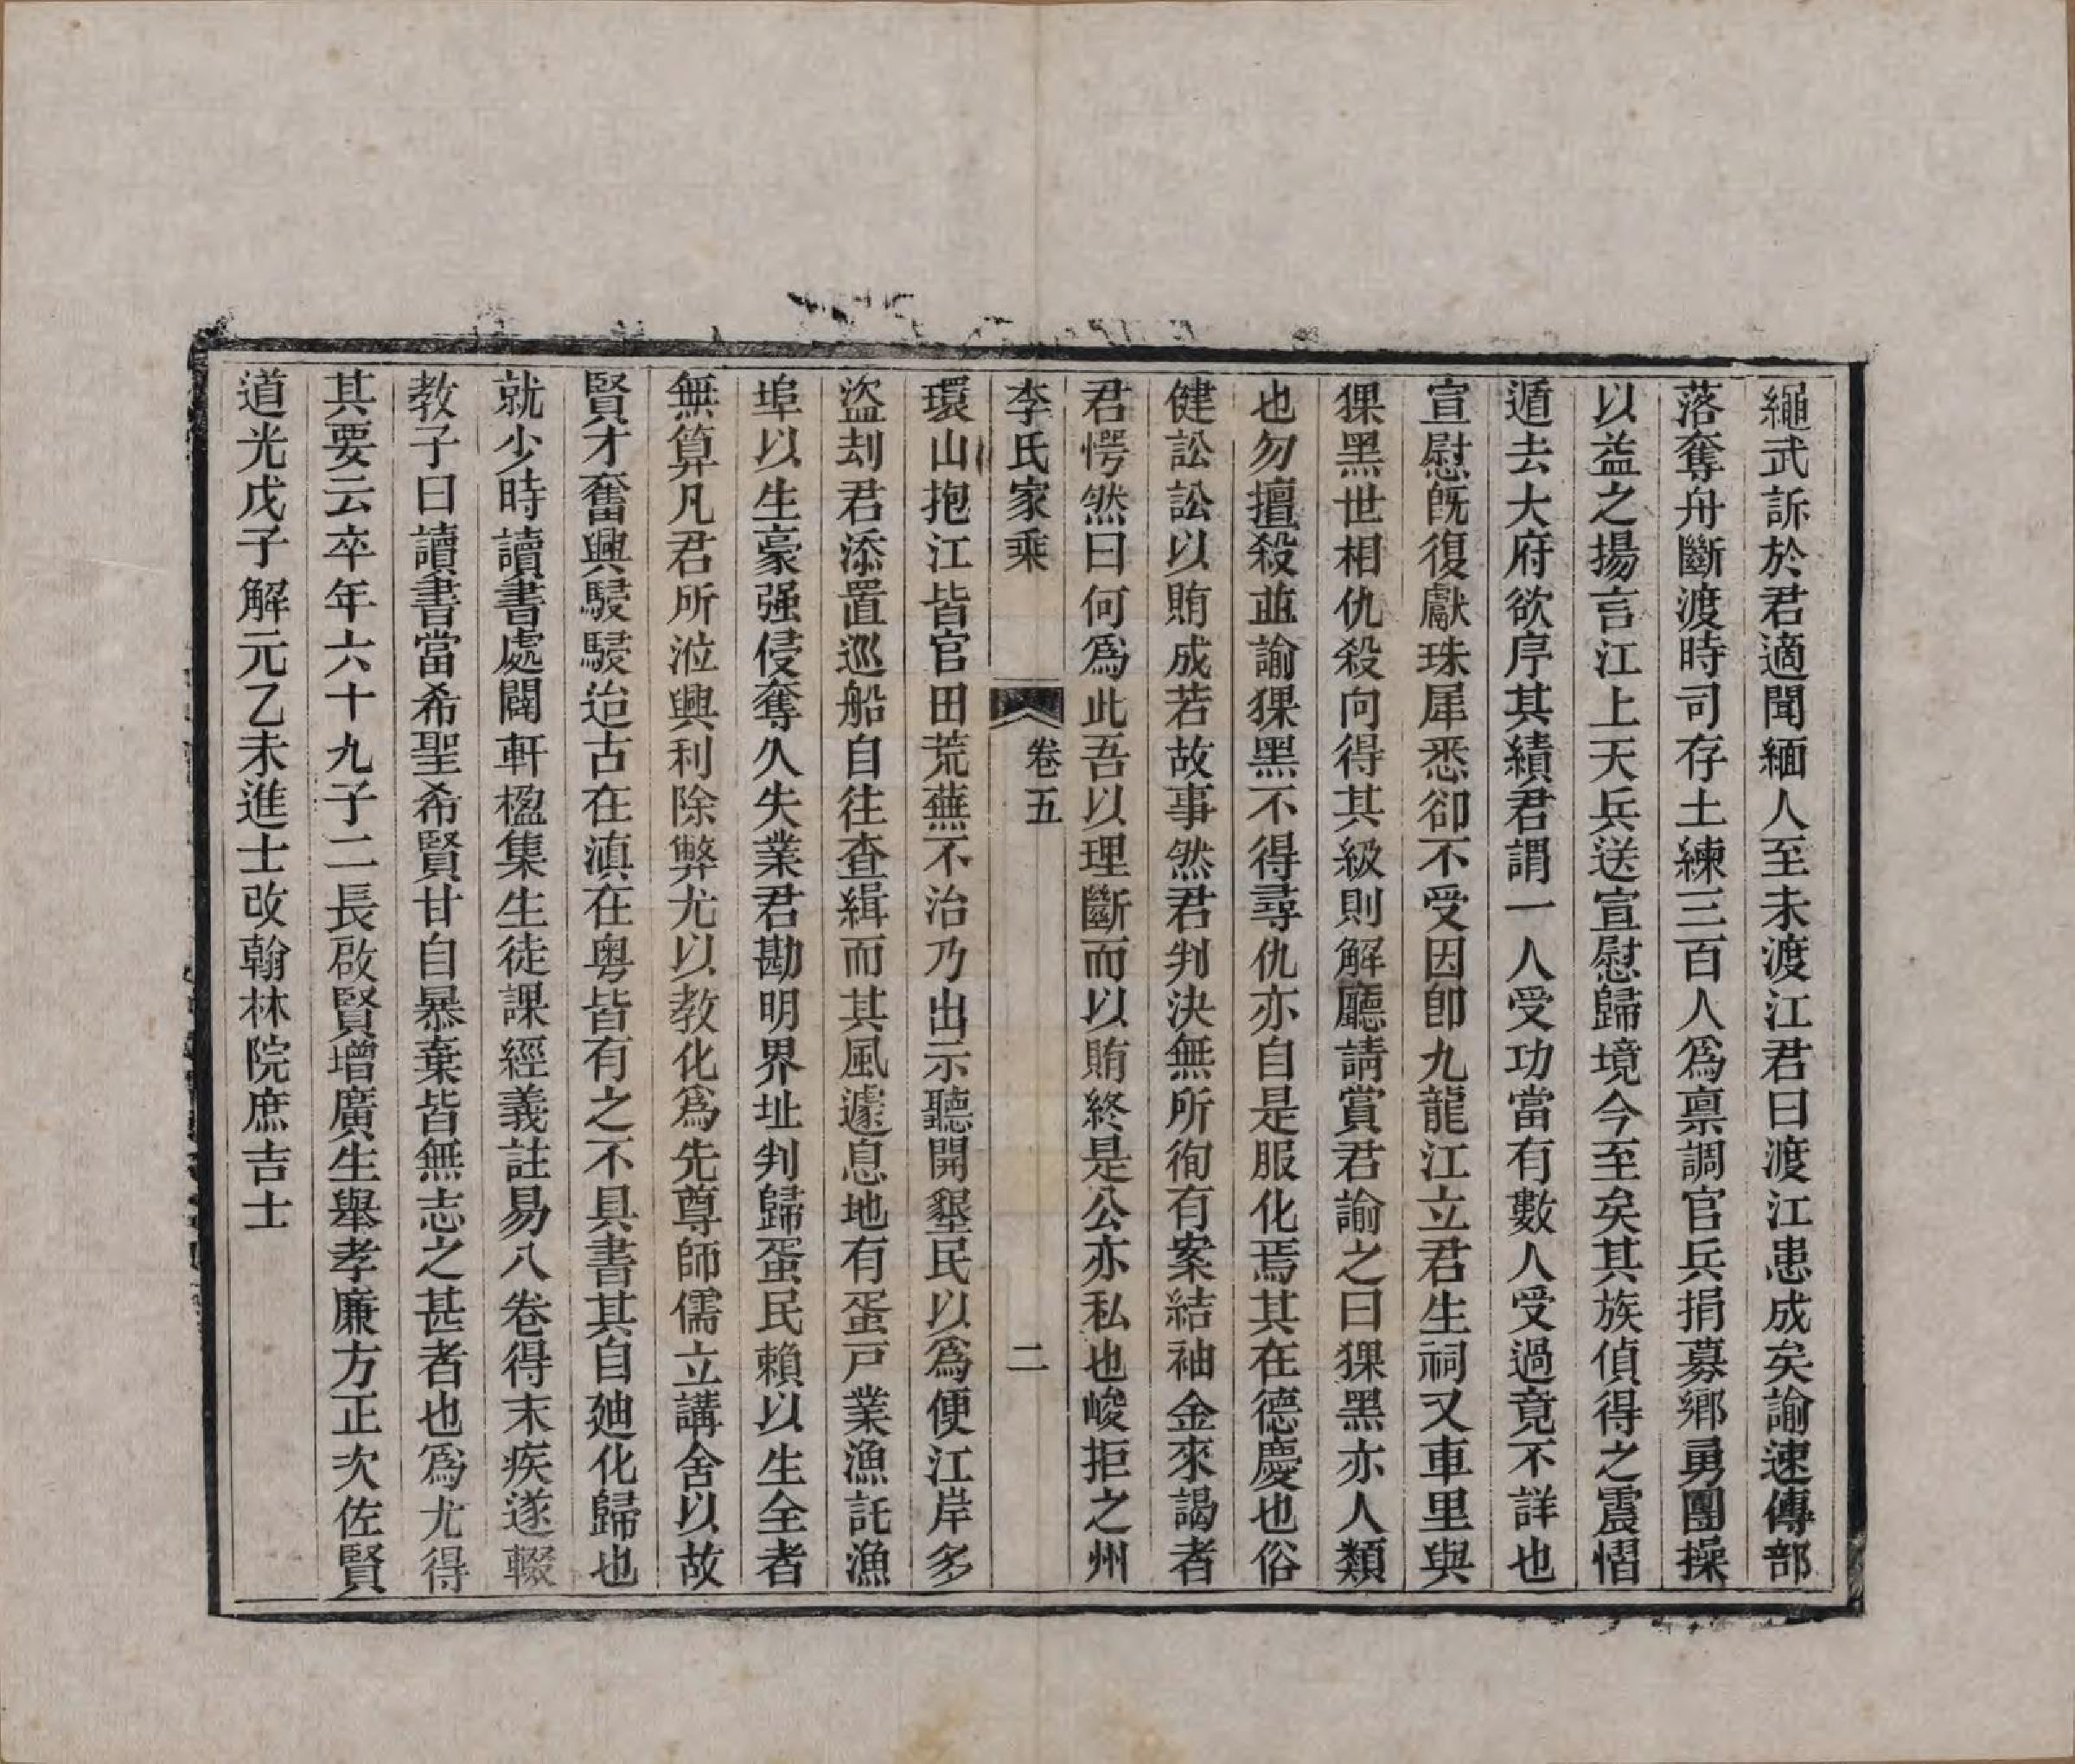 繩武訴於君適聞緬人至未渡江君曰渡江患成矣諭速傳部
落奪舟斷渡時司存土練三百人爲禀調官兵捐募鄉勇團操
以益之揚言江上天兵送宣慰歸境今至矣其族偵得之震慴
遁去大府欲序其績君謂一人受功當有數人受過竟不詳也
宣慰旣復獻珠犀悉卻不受因卽九龍江立君生祠又車里與
猓黑世相仇殺向得其級則解廳請賞君諭之曰猓黑亦人類
也勿擅殺並諭猓黑不得尋仇亦自是服化焉其在德慶也俗
健訟訟以賄成若故事然君判決無所徇有案結袖金來謁者
君愕然曰何爲此吾以理斷而以賄終是公亦私也峻拒之州
李氏家乘 卷五 二
環山抱江皆官田荒蕪不治乃出示聽開墾民以爲便江岸多
盜刦君添置巡船自往查緝而其風遽息地有蛋戸業漁託漁
埠以生豪强侵奪久失業君勘明界址判歸蛋民賴以生全者
無算凡君所涖興利除弊尤以教化爲先尊師儒立講舍以故
賢才奮興駸駸迨古在滇在粤皆有之不具書其自廸化歸也
就少時讀書處闢軒楹集生徒課經義註易八卷得末疾遂輟
教子曰讀書當希聖希賢甘自暴棄皆無志之甚者也爲尤得
其要云卒年六十九子二長啟賢增廣生舉孝廉方正次佐賢
道光戊子解元乙未進士改翰林院庶吉士